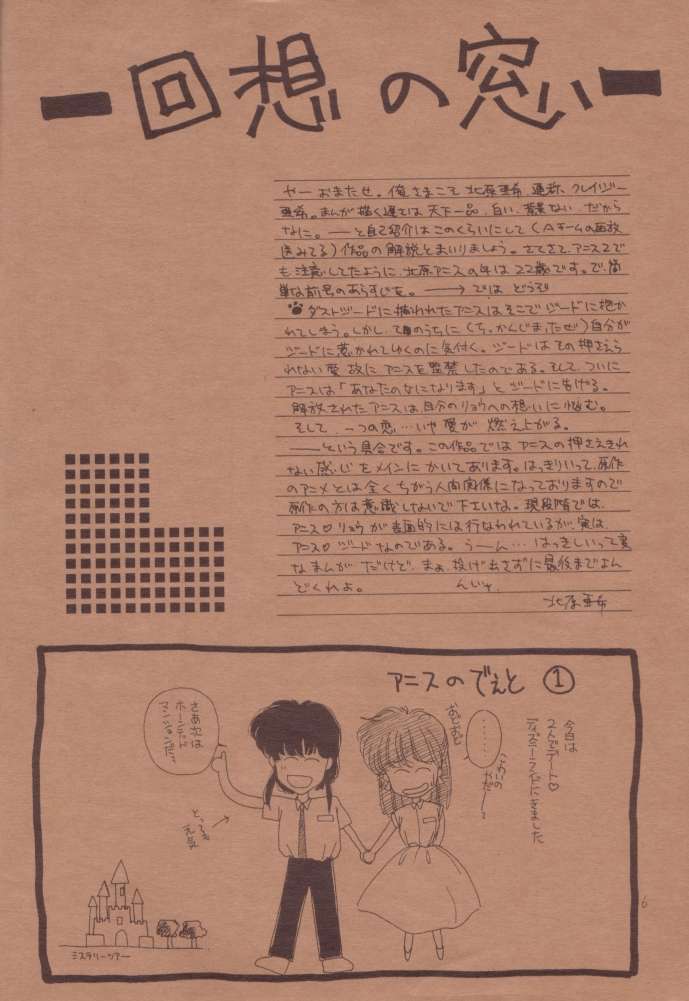 回想の窓
ヤー おまたせ。俺さまこそ 北原亜希 通称、クレイジー
亜希。まんが描く速さは天下一品、白い、背景ない、だから
なに。――と自己紹介はこのくらいにして(Aチームの再放
送みてる)作品の解説とまいりましょう。さてさて、アニス2で
も注意してたように、北原アニスの年は22歳です。で、簡
単な前号のあらすじを。――→ では どうぞ
ダストジードに捕われたアニスはそこでジードに抱か
れてしまう。しかし、そのうちに(ち、かんじまったぜ)自分が
ジードに惹かれてゆくのに気付く。ジードはその押さえら
れない愛故に、アニスを監禁したのである。そして、ついに
アニスは「あなたのなにになります」とジードに告げる。
解放されたアニスは、自分のリョウへの想いに悩む。
そして、一つの恋…いや愛が 燃え上がる。
――という具合です。この作品では アニスの押さえきれ
ない感じをメインにかいてあります。はっきりいって、原作
のアニメとは全くちがう人間関係になっておりますので
原作の方は意識しないで下さいな。現段階では、
アニス♡リョウが表面的には行なわれているが、実は、
アニス♡ジードなのである。うーん… はっきしいって変
なまんがだけど、まぁ、投げ出さずに最後までよん
どくれよ。 んじゃ、
北原亜希
アニスのでぇと ①
今日は
2人でデート♡
ディズニーランドにきました
おどおど
………
こういうの
やだー
さあ次は
ホーンテッド
マンションだっ
とっても
元気
ミステリーツアー
6